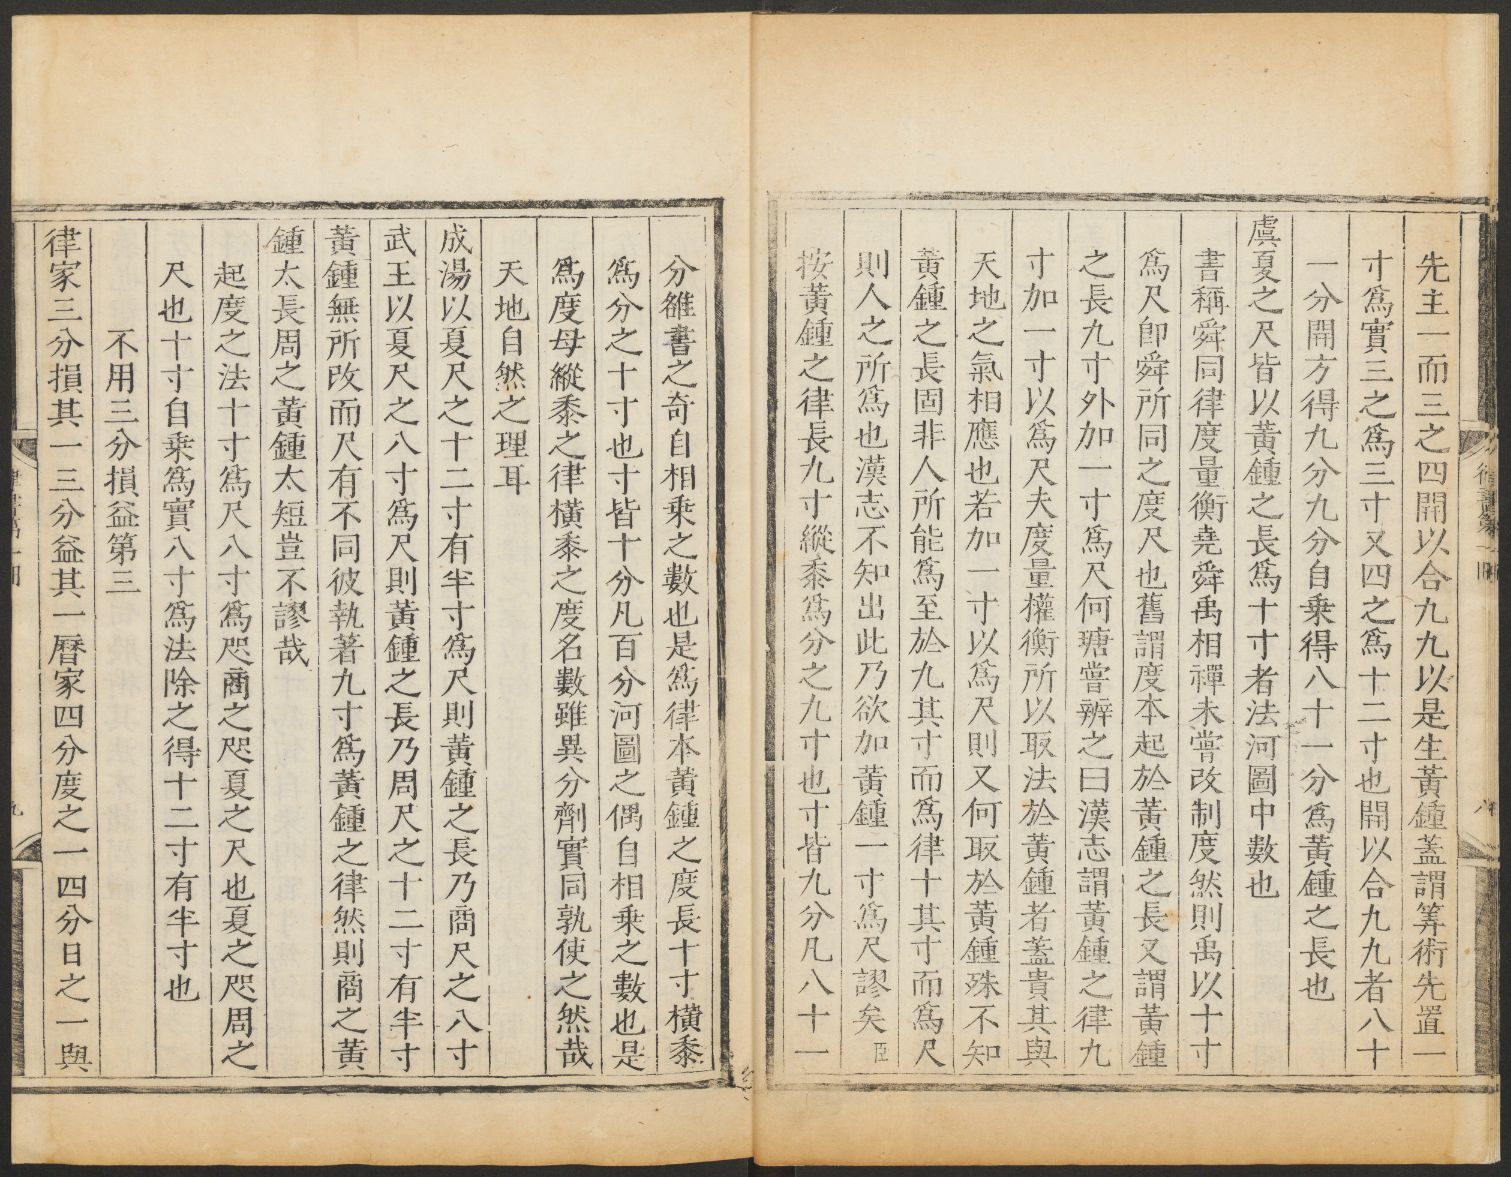 先主一而三之四開以合九九以是生黃鍾蓋謂筭術先置一
寸爲實三之爲三寸又四之爲十二寸也開以合九九者八十
一分開方得九分九分自乘得八十一分爲黃鍾之長也
虞夏之尺皆以黃鍾之長爲十寸者法河圖中數也
書稱舜同律度量衡堯舜禹相禪未嘗改制度然則禹以十寸
爲尺卽舜所同之度尺也舊謂度本起於黃鍾之長又謂黃鍾
之長九寸外加一寸爲尺何瑭嘗辨之曰漢志謂黃鍾之律九
寸加一寸以爲尺夫度量權衡所以取法於黃鍾者蓋貴其與
天地之氣相應也若加一寸以爲尺則又何取於黃鍾殊不知
黃鍾之長固非人所能爲至於九其寸而爲律十其寸而爲尺
則人之所爲也漢志不知出此乃欲加黃鍾一寸爲尺謬矣臣
按黃鍾之律長九寸縱黍爲分之九寸也寸皆九分凡八十一
分雒書之奇自相乘之數也是爲律本黃鍾之度長十寸橫黍
爲分之十寸也寸皆十分凡百分河圖之偶自相乘之數也是
爲度母縱黍之律橫黍之度名數雖異分劑實同孰使之然哉
天地自然之理耳
成湯以夏尺之十二寸有半寸爲尺則黃鍾之長乃商尺之八寸
武王以夏尺之八寸爲尺則黃鍾之長乃周尺之十二寸有半寸
黃鍾無所改而尺有不同彼執著九寸爲黃鍾之律然則商之黃
鍾太長周之黃鍾太短豈不謬哉
起度之法十寸爲尺八寸爲咫商之咫夏之尺也夏之咫周之
尺也十寸自乘爲實八寸爲法除之得十二寸有半寸也
不用三分損益第三
律家三分損其一三分益其一曆家四分度之一四分日之一與
九